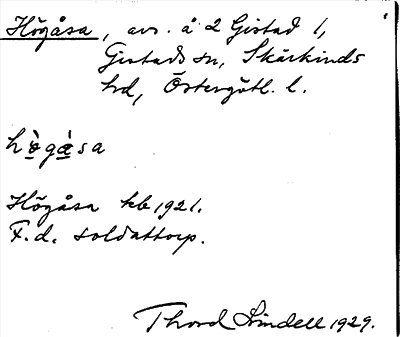 Högåsa, avs. å 2 Gistad l,
Gistads sn, Skärkinds
hd, Östergötl. l.
hö̀gàsa
Högåsa kb 1921.
F.d. soldattorp.
Thord Lindell 1929.